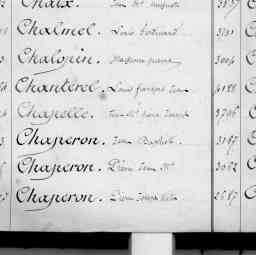 Chaix. Jean Mie Auguste
Chalmel. Louis bertrand 3191
Chalopin. 3004
Chanterel. Louis françois Jean 4188
Chapelle. Jean Mie pierre Joseph 3706
Chaperon. Jean Baptiste 3197
Chaperon. Pierre Jean Mie 3062
Chaperon. Pierre Joseph 2687